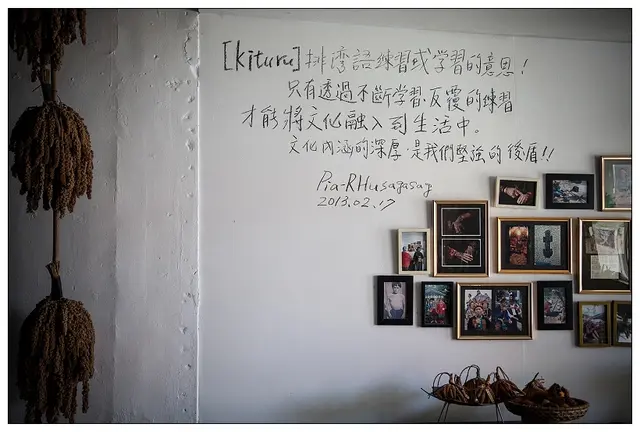 [kituru]排湾語練習或學習的意思!
只有透過不斷學習、反覆的練習
才能將文化融入到生活中。
文化內涵的深厚,是我們堅強的後盾!!
Pia-RHusagasag
2013.02.17